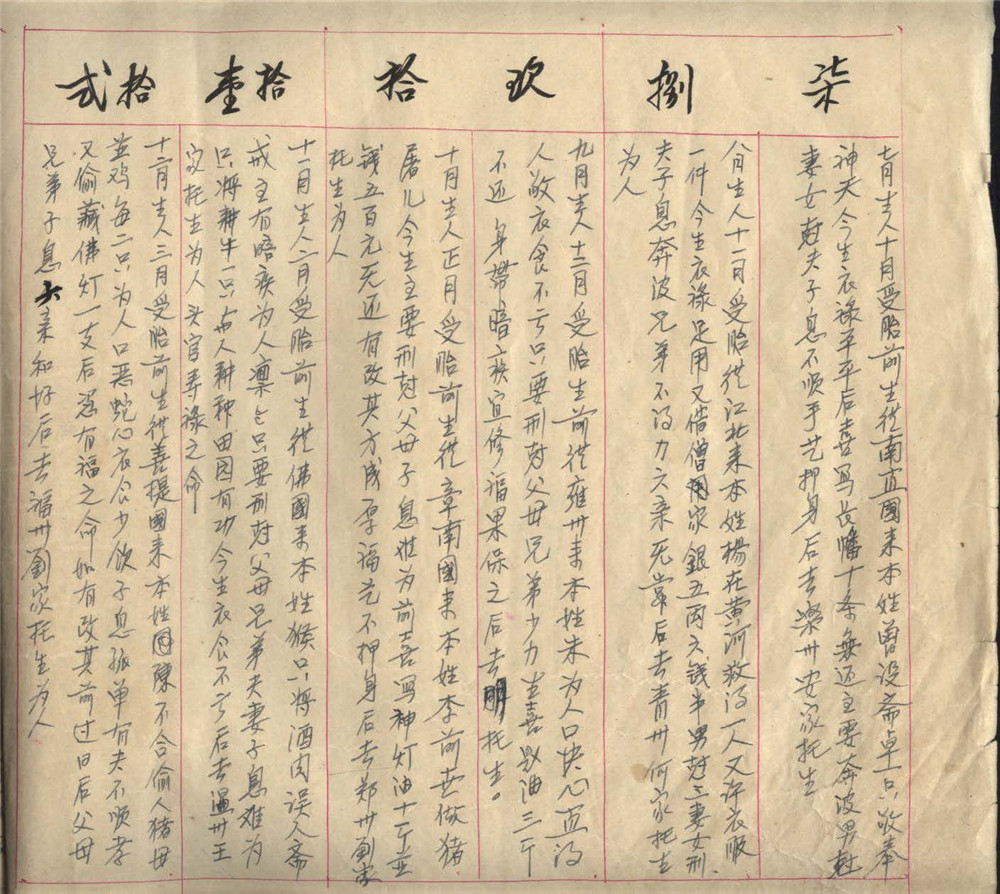 柒
捌
玖
拾
拾壹
拾弍
七月生人十月受胎前生從南宜國来本姓曾设斋卓一只敬奉
神天今生衣祿平平后喜写长幡十条無还主要奔波男尅
妻女尅夫子息不順手艺押身后去樂卅安家托生
八月生人十一月受胎從江北来本姓楊在黄河救得一人又许衣服
一件今生衣祿足用又借僧家銀五两六钱半男尅三妻女刑
夫子息奔波兄弟不得力六亲无靠后去青卅何家托生
为人
九月生人十二月受胎生前從雍卅来本姓朱为人口快心直得
人敬衣食不亏只要刑尅父母兄弟少力生喜油三斤
不还身带暗疾宜修福果保之后去明托生。
十月生人正月受胎前生從章南國来本姓李前世做猪
屠儿今生主要刑尅父母子息难为前喜写神灯油十斤並
钱五百元无还有改其方成厚福艺不押身后去郑卅劉家
托生为人
十一月生人二月受胎前生從佛國来本姓猴只將酒肉误人斋
戒主有暗疾为人凛只要刑尅父母兄弟夫妻子息难为
只將耕牛一只与人耕种田园有功今生衣食不亏后去卅王
家托生为人头官寿祿之命
十二月生人三月受胎前生從菩提國来本姓陳不合偷人猪母
並鸡每二只为人口恶蛇心衣食少欽子息孤单有夫不順孝
又偷藏佛灯一支后恐有福之命如有改其前过日后父母
兄弟子息六亲和好后去福卅劉家托生为人